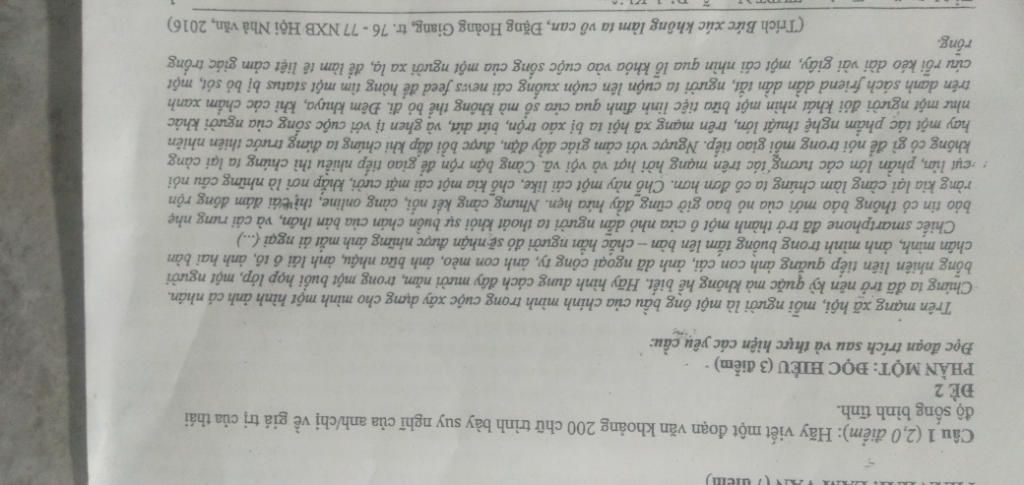 Câu 1 (2,0 điểm): Hãy viết một đoạn văn khoảng 200 chữ trình bày suy nghĩ của anh/chị về giá trị của thái
độ sống bình tĩnh.
ĐỀ 2
PHẦN MỘT: ĐỌC HIỂU (3 điểm)
Đọc đoạn trích sau và thực hiện các yêu cầu:
Trên mạng xã hội, mỗi người là một ông bầu của chính mình trong cuộc xây dựng cho mình một hình ảnh cá nhân.
Chúng ta đã trở nên kỳ quặc mà không hề biết. Hãy hình dung cách đây mươi năm, trong một buổi họp lớp, một người
bỗng nhiên liên tiếp quăng ảnh con cái, ảnh dã ngoại công ty, ảnh con mèo, ảnh bữa nhậu, ảnh lái ô tô, ảnh hai bàn
chân mình, ảnh mình trong buồng tắm lên bàn – chắc hẳn người đó sẽ nhận được những ánh mắt ái ngại (...)
Chiếc smartphone đã trở thành một ô cửa nhỏ dẫn người ta thoát khỏi sự buồn chán của bản thân, và cái rung nhẹ
báo tin có thông báo mới của nó bao giờ cũng đầy hứa hẹn. Nhưng càng kết nối, càng online, thì cái đám đông rộn
ràng kia lại càng làm chúng ta cô đơn hơn. Chỗ này một cái like, chỗ kia một cái mặt cười, khắp nơi là những câu nói
cụt lủn, phần lớn các tương tác trên mạng hời hợt và vội vã. Càng bận rộn để giao tiếp nhiều thì chúng ta lại càng
không có gì để nói trong mỗi giao tiếp. Ngược với cảm giác đầy đặn, được bồi đắp khi chúng ta đứng trước thiên nhiên
hay một tác phẩm nghệ thuật lớn, trên mạng xã hội ta bị xáo trộn, bứt dứt, và ghen tị với cuộc sống của người khác
như một người đói khát nhìn một bữa tiệc linh đình qua cửa sổ mà không thể bỏ đi. Đêm khuya, khi các chấm xanh
trên danh sách friend dần dần tắt, người ta cuộn lên cuộn xuống cái news feed để hòng tìm một status bị bỏ sót, một
cứu rỗi kéo dài vài giây, một cái nhìn qua lỗ khóa vào cuộc sống của một người xa lạ, để làm tê liệt cảm giác trống
rỗng.
(Trích Bức xúc không làm ta vô can, Đặng Hoàng Giang, tr. 76 - 77 NXB Hội Nhà văn, 2016)